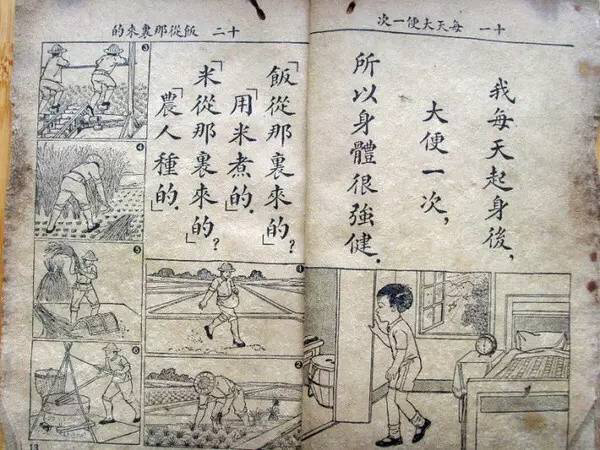 十一 每天大便一次
我每天起身後,
大便一次,
所以身體很強健.
十二 飯從那裏來的
「飯從那裏來的?」
「用米煮的.」
「米從那裏來的?」
「農人種的.」
1
2
3
4
5
6
13